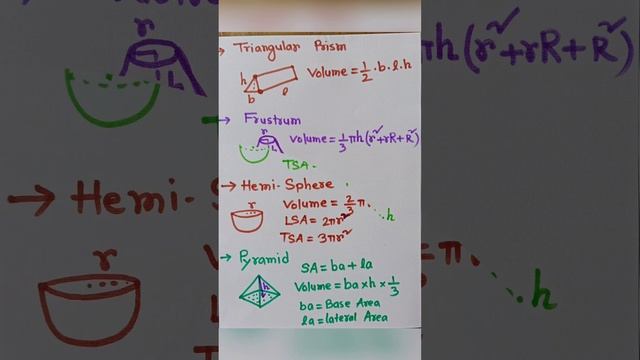 → Triangular Prism
h
b
l
Volume = 1/2 . b . l . h
→ Frustrum
r
L
Volume = 1/3 πh(r²+rR+R²)
TSA.
→ Hemi-Sphere
r
Volume = 2/3 π.
h
LSA = 2πr²
TSA = 3πr²
→ Pyramid
h
SA = ba + la
Volume = ba x h x 1/3
ba = Base Area
la = lateral Area